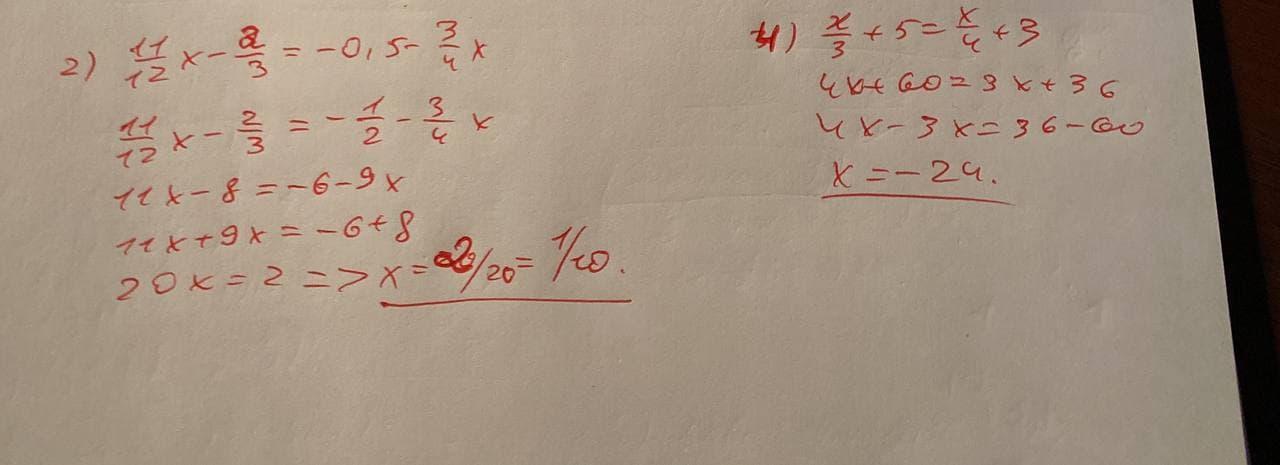 2) 11/12 x - 2/3 = -0,5 - 3/4 x
11/12 x - 2/3 = -1/2 - 3/4 x
11x - 8 = -6 - 9x
11x + 9x = -6 + 8
20x = 2 => x = 2/20 = 1/10.
4) x/3 + 5 = x/4 + 3
4x + 60 = 3x + 36
4x - 3x = 36 - 60
x = -24.